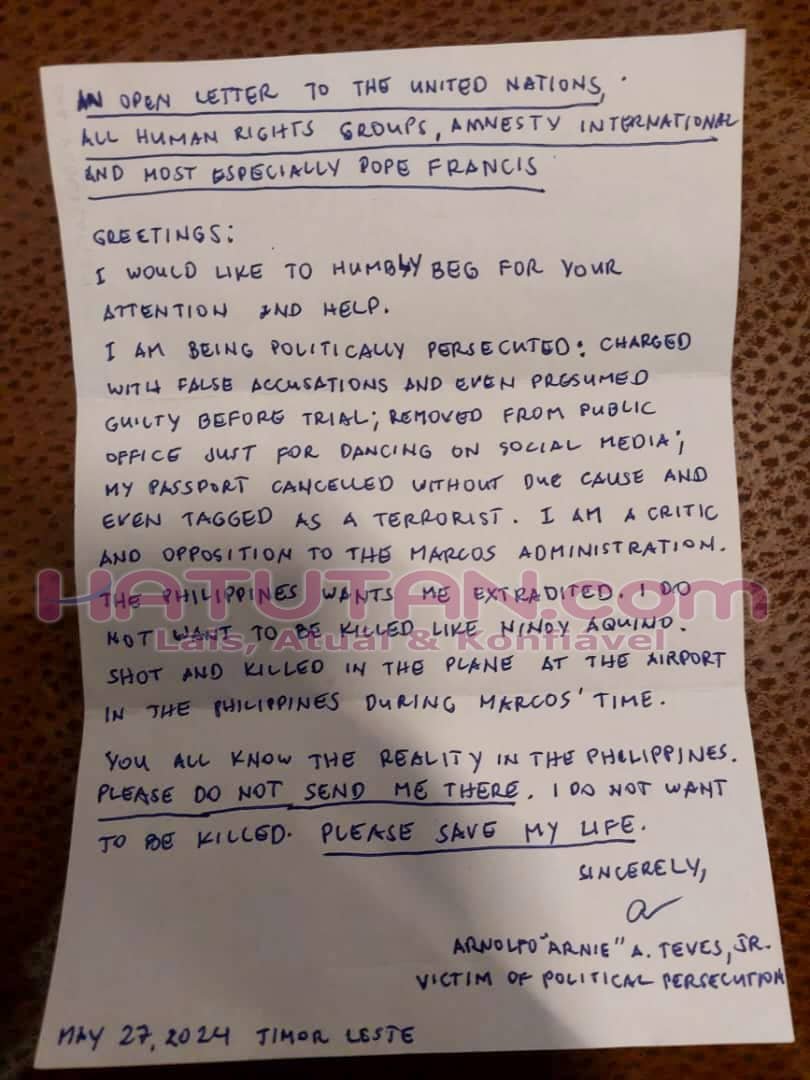 AN OPEN LETTER TO THE UNITED NATIONS,
ALL HUMAN RIGHTS GROUPS, AMNESTY INTERNATIONAL
AND MOST ESPECIALLY POPE FRANCIS
GREETINGS:
I WOULD LIKE TO HUMBLY BEG FOR YOUR
ATTENTION AND HELP.
I AM BEING POLITICALLY PERSECUTED: CHARGED
WITH FALSE ACCUSATIONS AND EVEN PRESUMED
GUILTY BEFORE TRIAL; REMOVED FROM PUBLIC
OFFICE JUST FOR DANCING ON SOCIAL MEDIA;
MY PASSPORT CANCELLED WITHOUT DUE CAUSE AND
EVEN TAGGED AS A TERRORIST. I AM A CRITIC
AND OPPOSITION TO THE MARCOS ADMINISTRATION.
THE PHILIPPINES WANTS ME EXTRADITED. I DO
HATUTAN.com
NOT WANT TO BE KILLED LIKE NINOY AQUINO.
Lais, Atual & Konfiavel
SHOT AND KILLED IN THE PLANE AT THE AIRPORT
IN THE PHILIPPINES DURING MARCOS' TIME.
YOU ALL KNOW THE REALITY IN THE PHILIPPINES.
PLEASE DO NOT SEND ME THERE. I DO NOT WANT
TO BE KILLED. PLEASE SAVE MY LIFE.
SINCERELY,
ARNOLFO "ARNIE" A. TEVES, JR.
VICTIM OF POLITICAL PERSECUTION
MAY 27, 2024 TIMOR LESTE